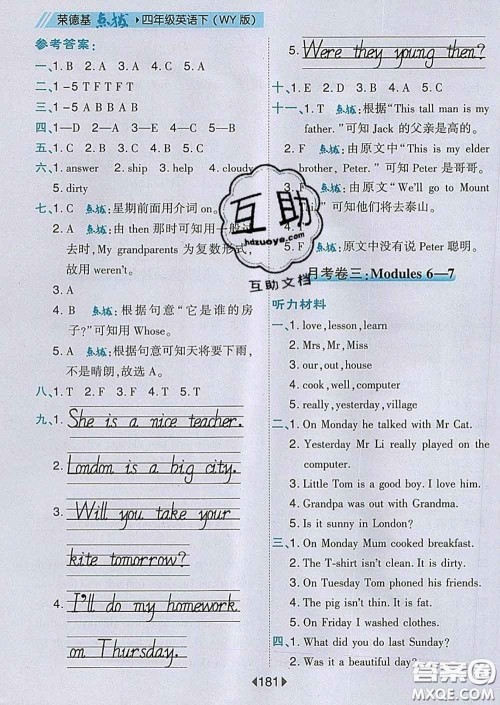 荣德基 点拨 四年级英语下(WY版)
参考答案:
一、1. B 2. A 3. A 4. C 5. C
二、1-5 TFTFT
三、1-5 ABBAB
四、1—D 2—E 3—A 4—B 5—C
五、1. C 2. B 3. B 4. A 5. C
六、1. answer 2. ship 3. help 4. cloudy
5. dirty
七、1. C 点拨:星期前面用介词 on。
2. B 点拨:由 then 那时可知用一般过
去时, My grandparents 为复数形式,
故用 weren't。
3. A
4. B 点拨:根据句意“它是谁的房
子?”可知用 Whose。
5. C 点拨:根据句意可知天将要下雨,
不是晴朗,故选 A。
八、1. T 2. F 3. F 4. T 5. T
九、1. She is a nice teacher.
2. London is a big city.
3. Will you take your
kite tomorrow?
4. I'll do my homework
on Thursday.
5. Were they young then?
十、1. D 2. E 3. B 4. A 5. C
十一、1. T 点拨:根据“This tall man is my
father.”可知 Jack 的父亲是高的。
2. F 点拨:由原文中“This is my elder
brother, Peter.”可知 Peter 是哥哥。
3. F 点拨:由原文“We'll go to Mount
可知他们将去泰山。
4. T
5. F 点拨:原文中没有说 Peter 聪明。
月考卷三:Modules 6—7
听力材料
一、1. love, lesson, learn
2. Mrs, Mr, Miss
3. our, out, house
4. cook, well, computer
5. really, yesterday, village
二、1. On Monday he talked with Mr Cat.
2. Yesterday Mr Li really played on the
computer.
3. Little Tom is a good boy. He is clever.
4. Grandpa was out with Grandma.
5. Is it sunny in London?
三、1. On Monday Mum cooked breakfast.
2. The T-shirt isn't clean. It is dirty.
3. On Tuesday Tom phoned his friends.
4. The pig isn't thin. It is fat.
5. On Friday I washed clothes.
四、1. What did you do last Sunday?
2. Was it a beautiful day?
181
互助
hdzuoye.com
互助文档
答案圈
MXQE.COM